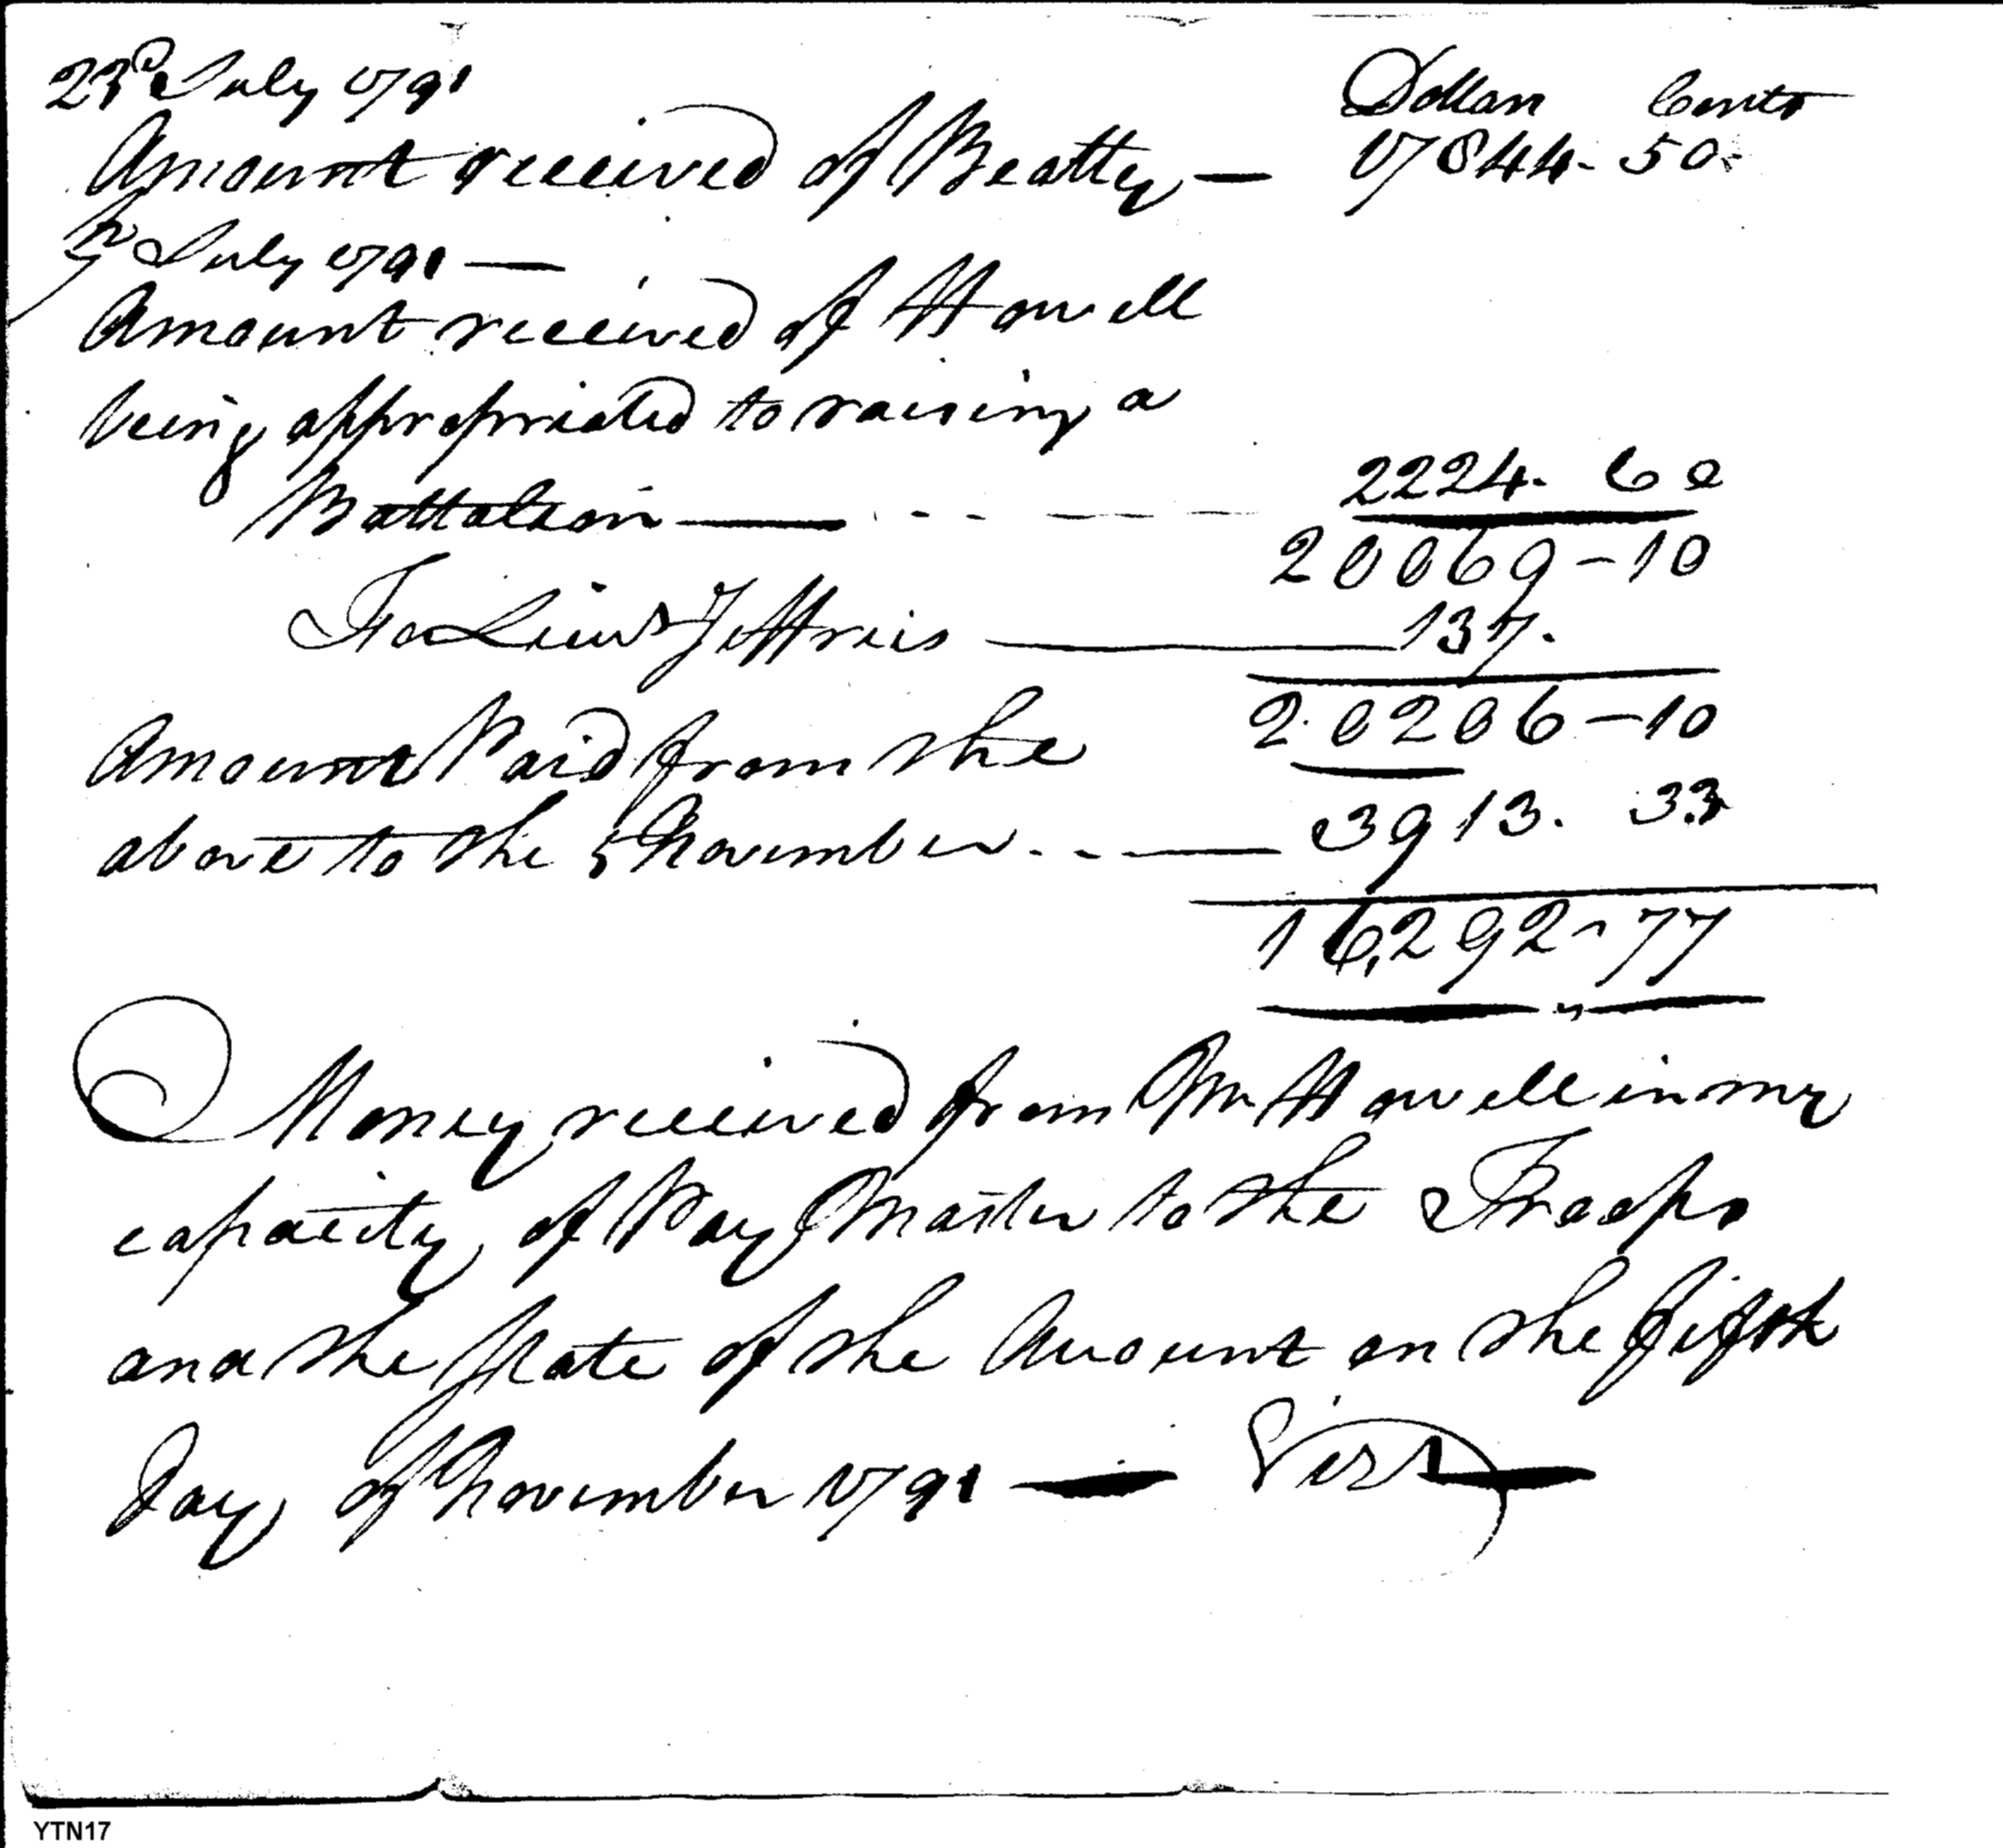 23d July 1791 Dollars Cents
Amount received of Beatty — 17844. 50
July 1791 —
Amount received of Howell
being appropriated to raising a
Battalion — 2224. 60
20069 - 10
To Lieut Jeffries — 137.
20206 - 10
Amount Paid from the
above to the 5 November — 3913. 33
16,292 - 77
Money received from Mr Howell in my
capacity of Pay Master to the Troops
and the State of the Account on the fifth
Day of November 1791 — Vizt
YTN17